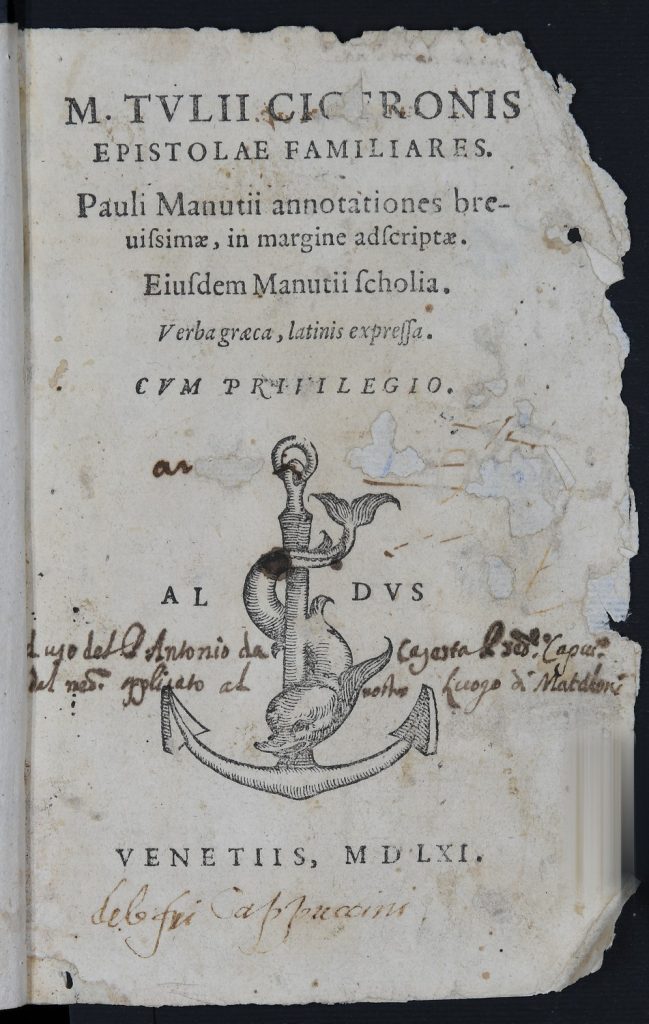 M. TVLII CICERONIS
EPISTOLAE FAMILIARES.
Pauli Manutii annotationes bre-
uiſsimæ, in margine adſcriptæ.
Eiuſdem Manutii ſcholia.
Verba græca, latinis expreſſa.
CVM PRIVILEGIO.
ar
AL DVS
uso del P. Antonio da Caserta
applicato al nostro Luogo di Mataloni
VENETIIS, MDLXI.
Cappuccini